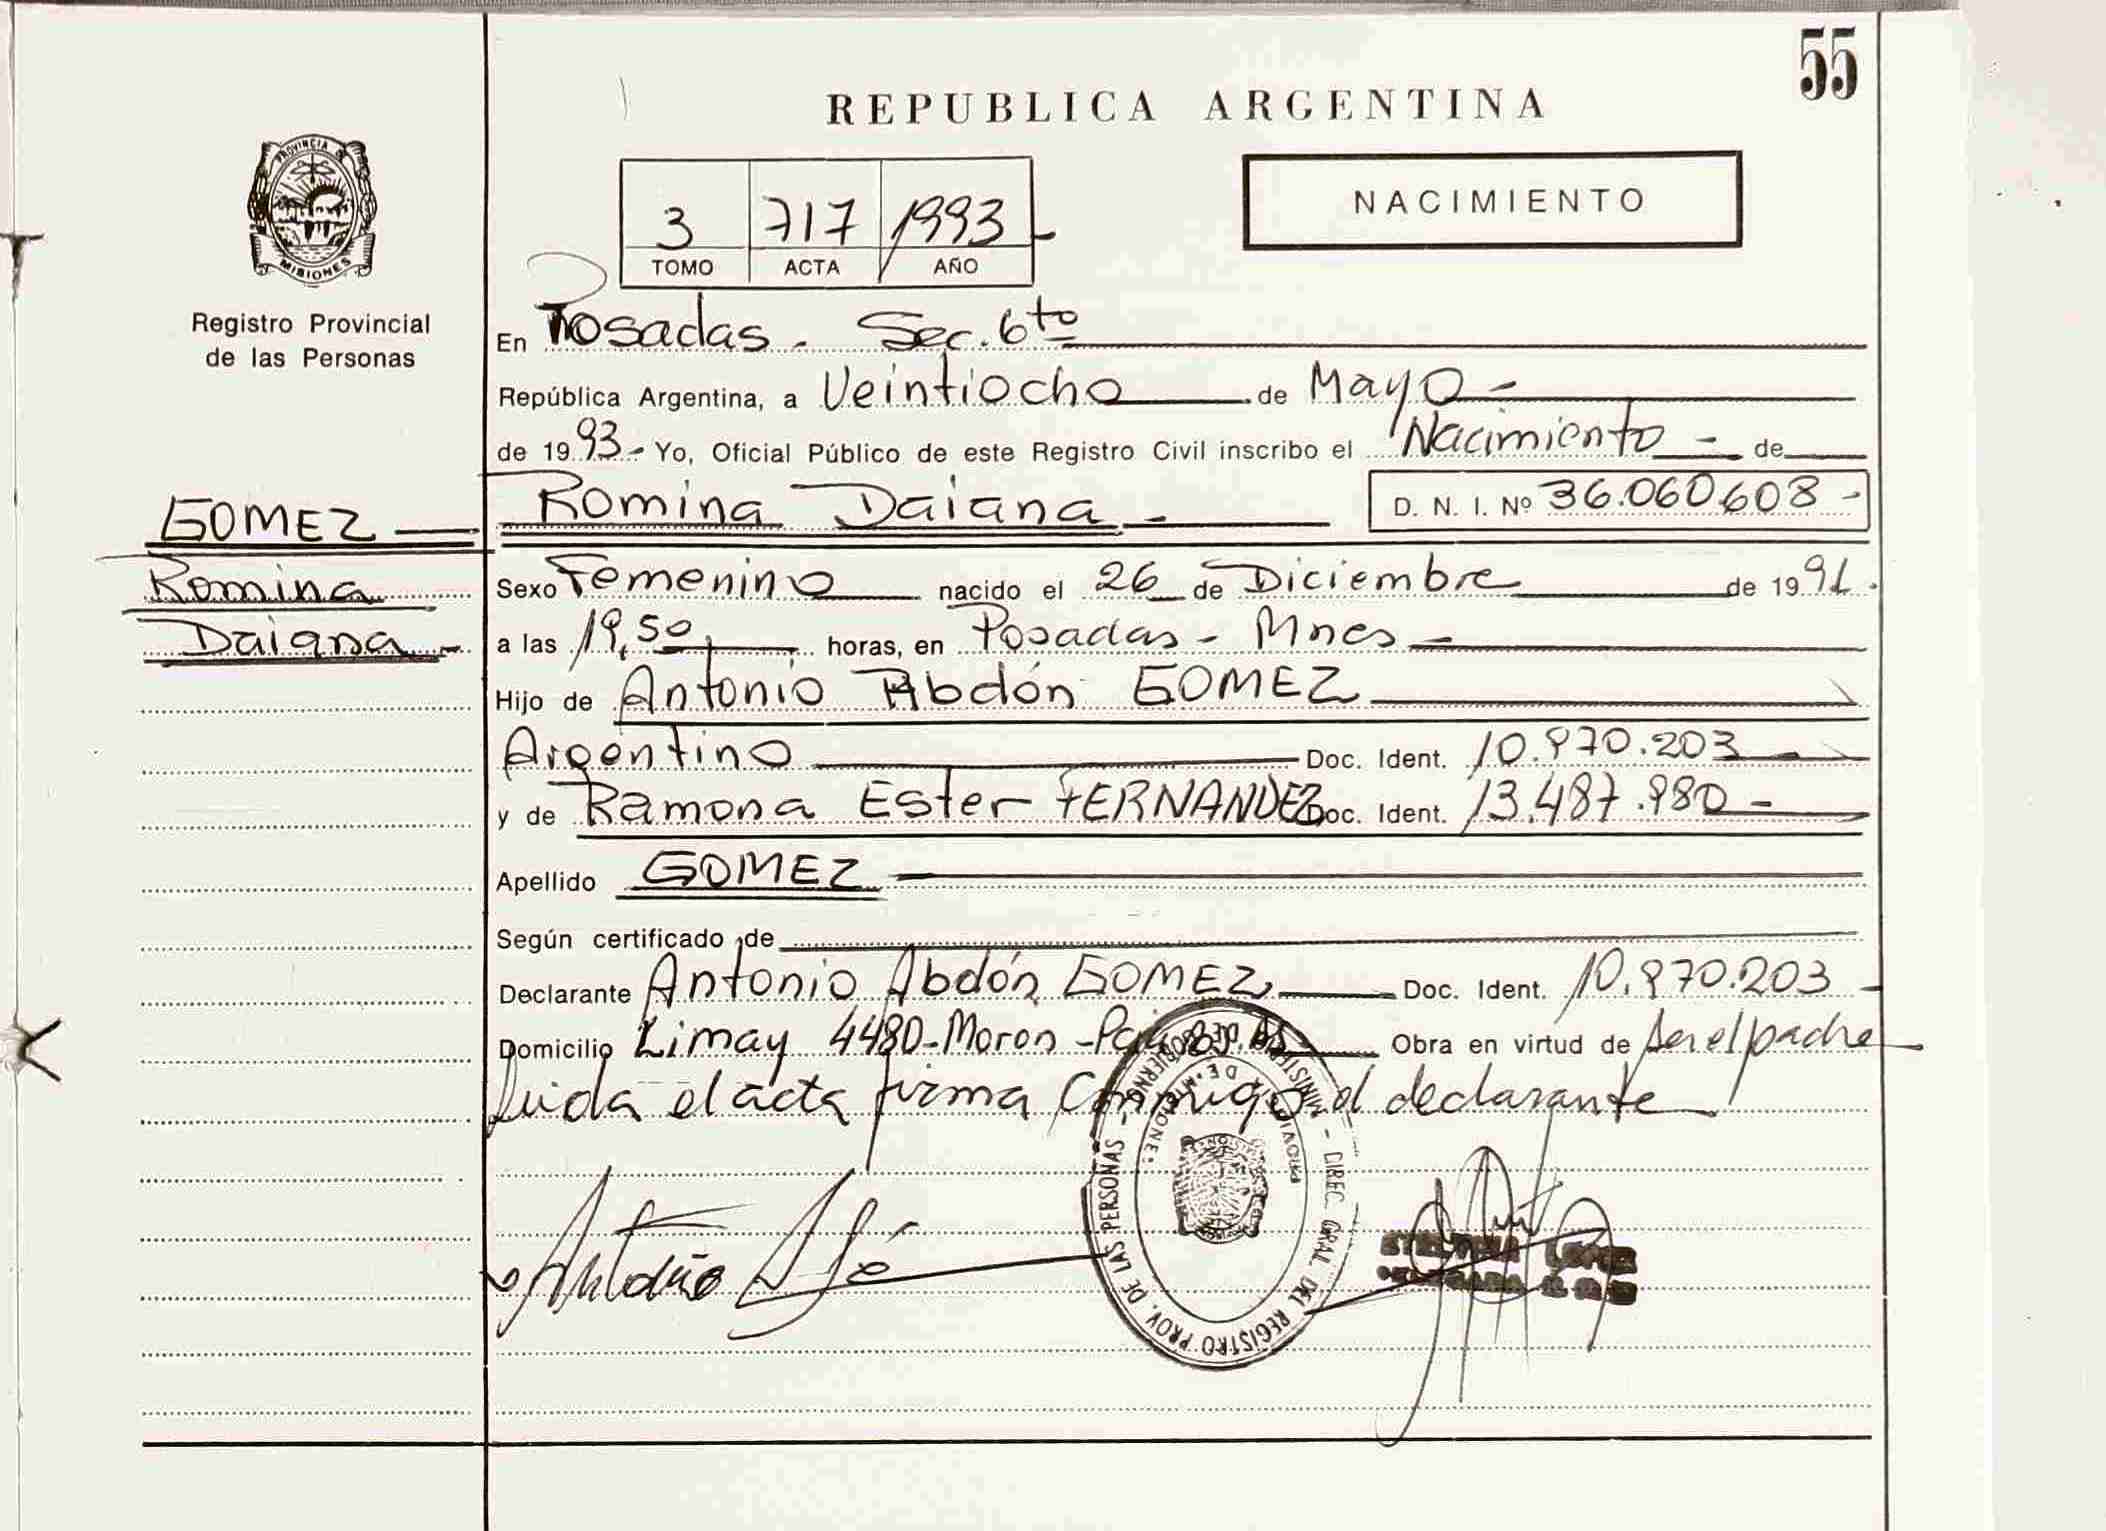 55
REPUBLICA ARGENTINA
PROVINCIA DE
MISIONES
Registro Provincial
de las Personas
3 717 1993 -
TOMO ACTA AÑO
NACIMIENTO
En Posadas - Sec. 6to
República Argentina, a Veintiocho de Mayo -
de 1993 - Yo, Oficial Público de este Registro Civil inscribo el Nacimiento - de
GOMEZ
Romina
Daiana -
Romina Daiana - D. N. I. Nº 36.060.608 -
Sexo Femenino nacido el 26 de Diciembre de 1991.
a las 19,50 horas, en Posadas - Mnes -
Hijo de Antonio Abdón GOMEZ
Argentino Doc. Ident. 10.970.203
y de Ramona Ester FERNANDEZ Doc. Ident. 13.487.980 -
Apellido GOMEZ
Según certificado de
Declarante Antonio Abdón GOMEZ Doc. Ident. 10.970.203 -
Domicilio Limay 4480 - Moron - Pcia Bs. As Obra en virtud de ser el padre
Leida el acta firma Conmigo el declarante
DIREC. GRAL. DEL REGISTRO PROV. DE LAS PERSONAS -